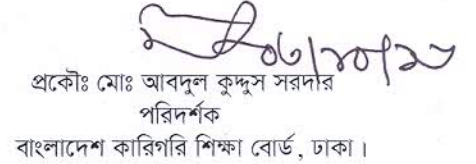 প্রকৌঃ মোঃ আবদুল কুদ্দুস সরদার
পরিদর্শক
বাংলাদেশ কারিগরি শিক্ষা বোর্ড, ঢাকা।